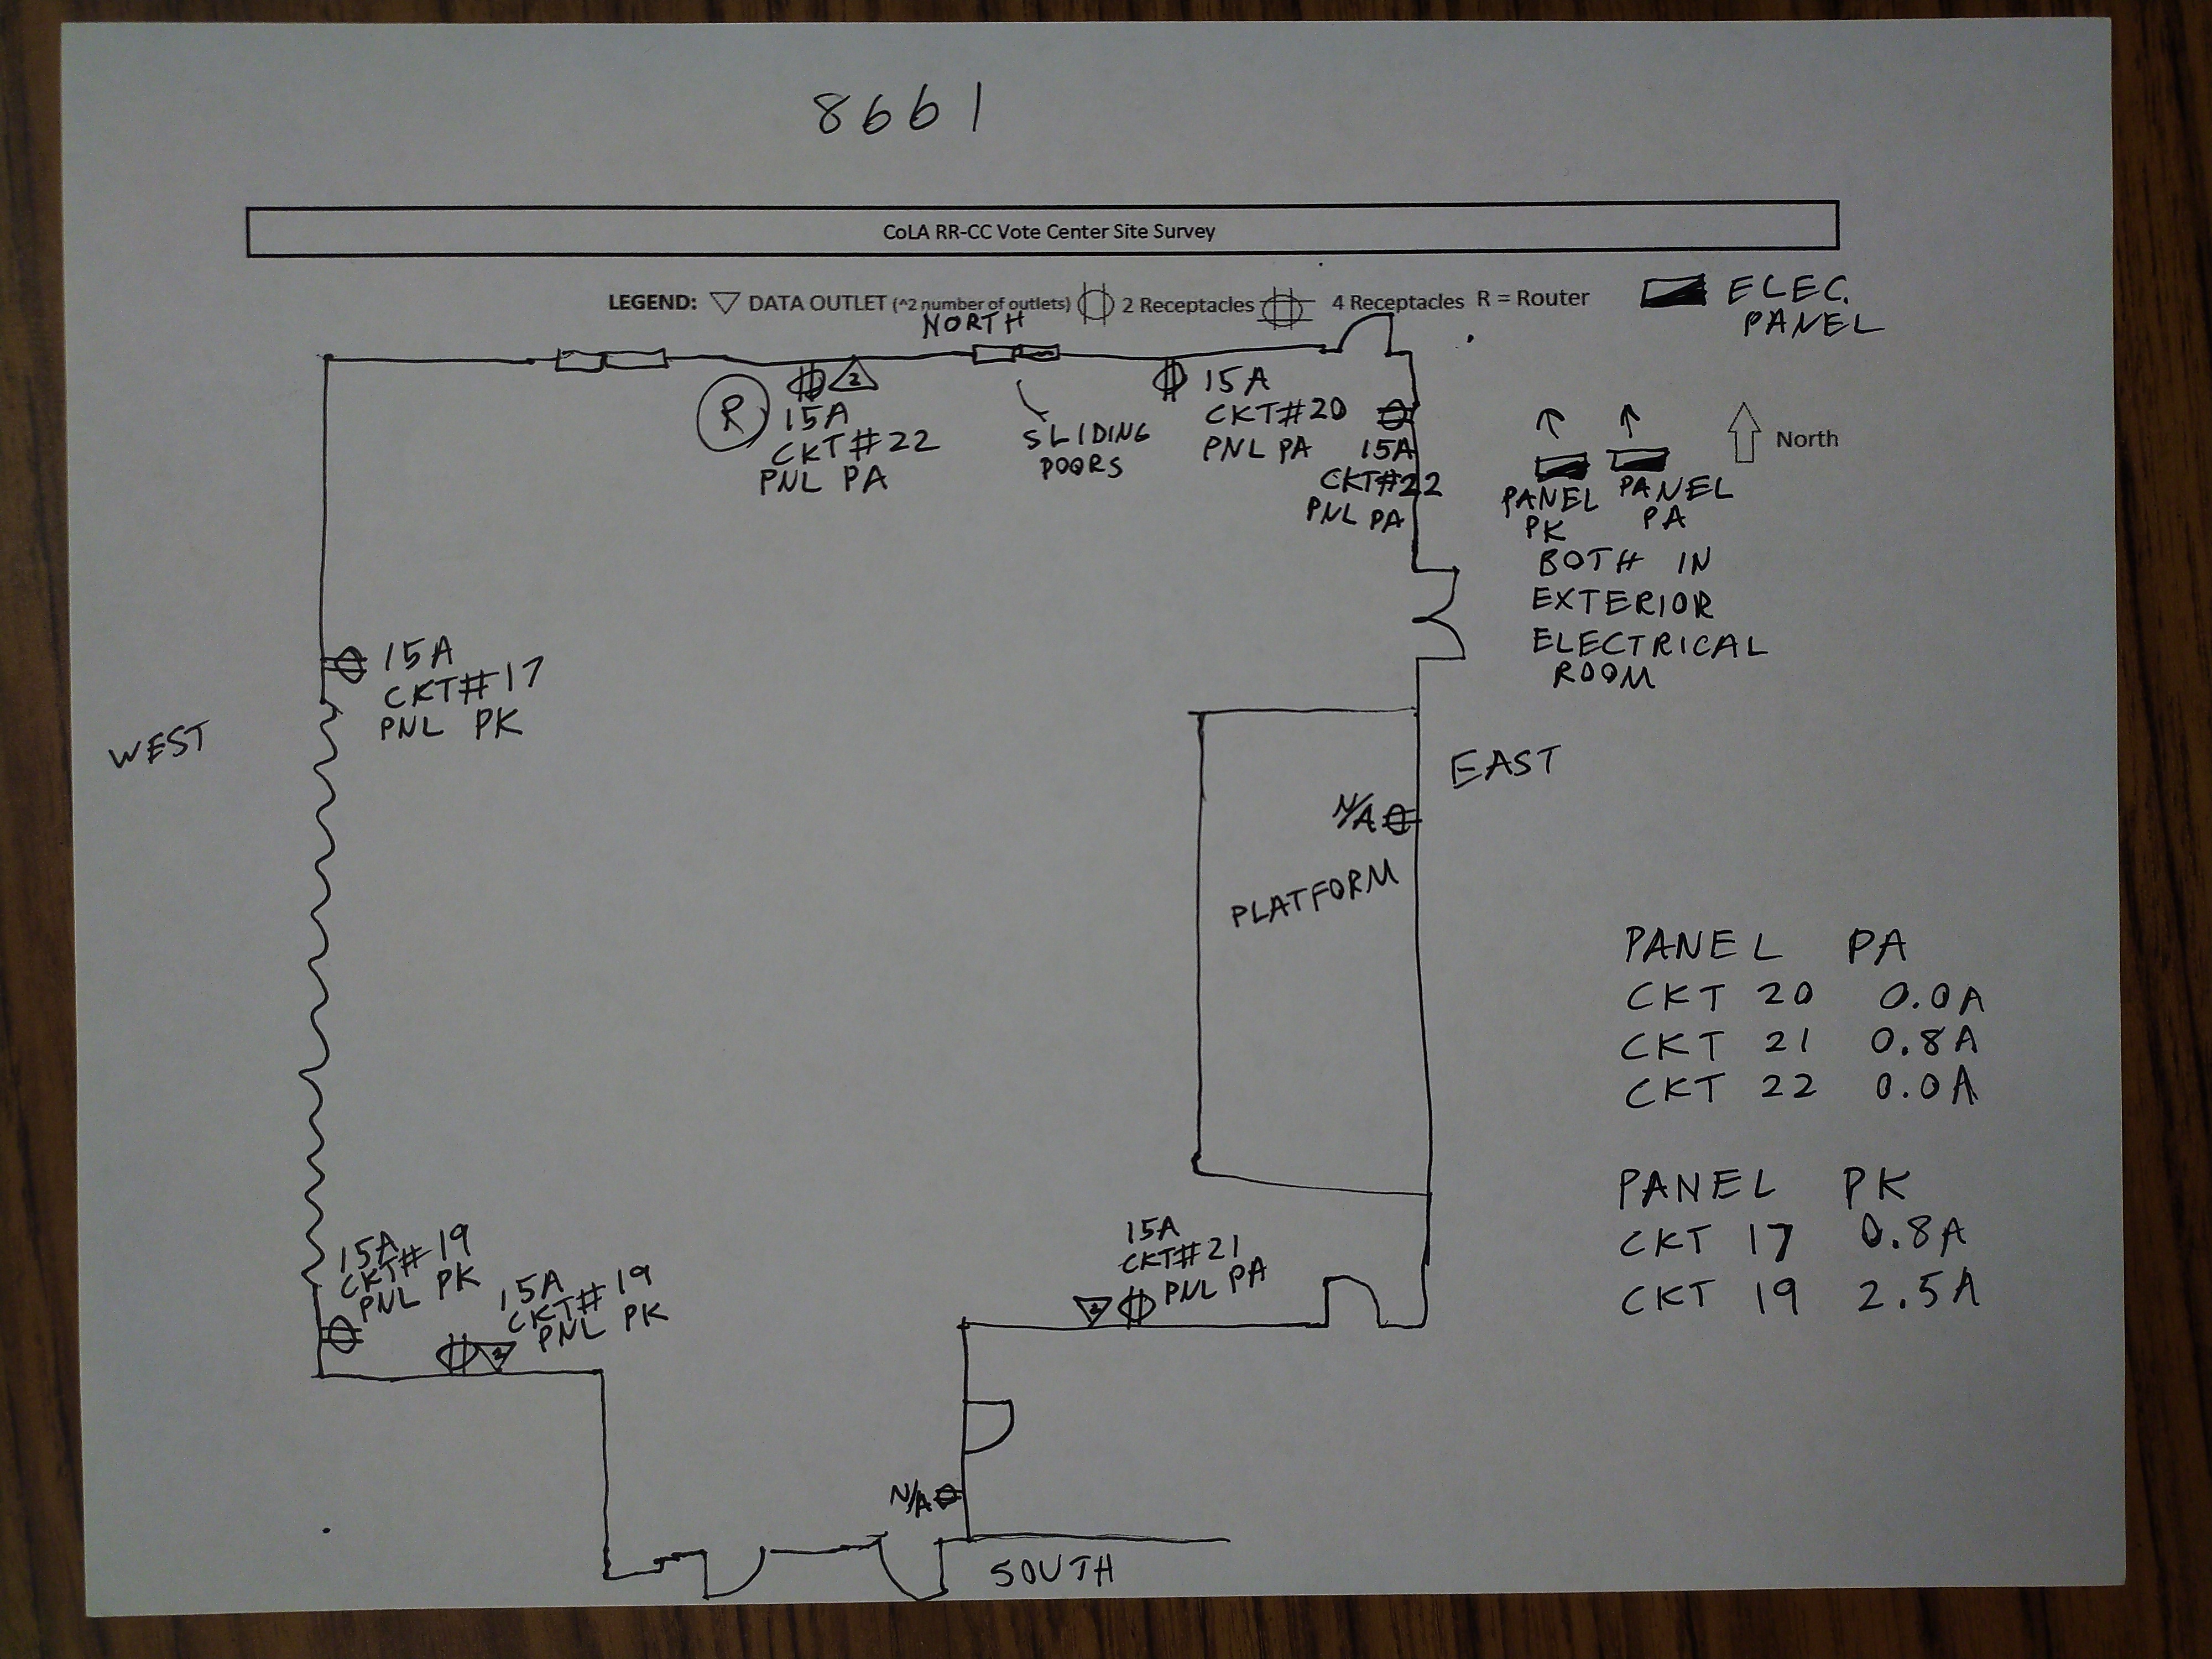 8661
CoLA RR-CC Vote Center Site Survey
LEGEND: DATA OUTLET (^2 number of outlets) 2 Receptacles 4 Receptacles R = Router
ELEC.
PANEL
NORTH
R
2
15A
CKT#22
PNL PA
SLIDING
DOORS
15A
CKT#20
PNL PA
15A
CKT#22
PNL PA
North
PANEL
PK
PANEL
PA
BOTH IN
EXTERIOR
ELECTRICAL
ROOM
15A
CKT#17
PNL PK
WEST
EAST
N/A
PLATFORM
PANEL PA
CKT 20 0.0A
CKT 21 0.8A
CKT 22 0.0A
PANEL PK
CKT 17 0.8A
CKT 19 2.5A
15A
CKT#19
PNL PK
15A
CKT#19
PNL PK
15A
CKT#21
PNL PA
N/A
SOUTH